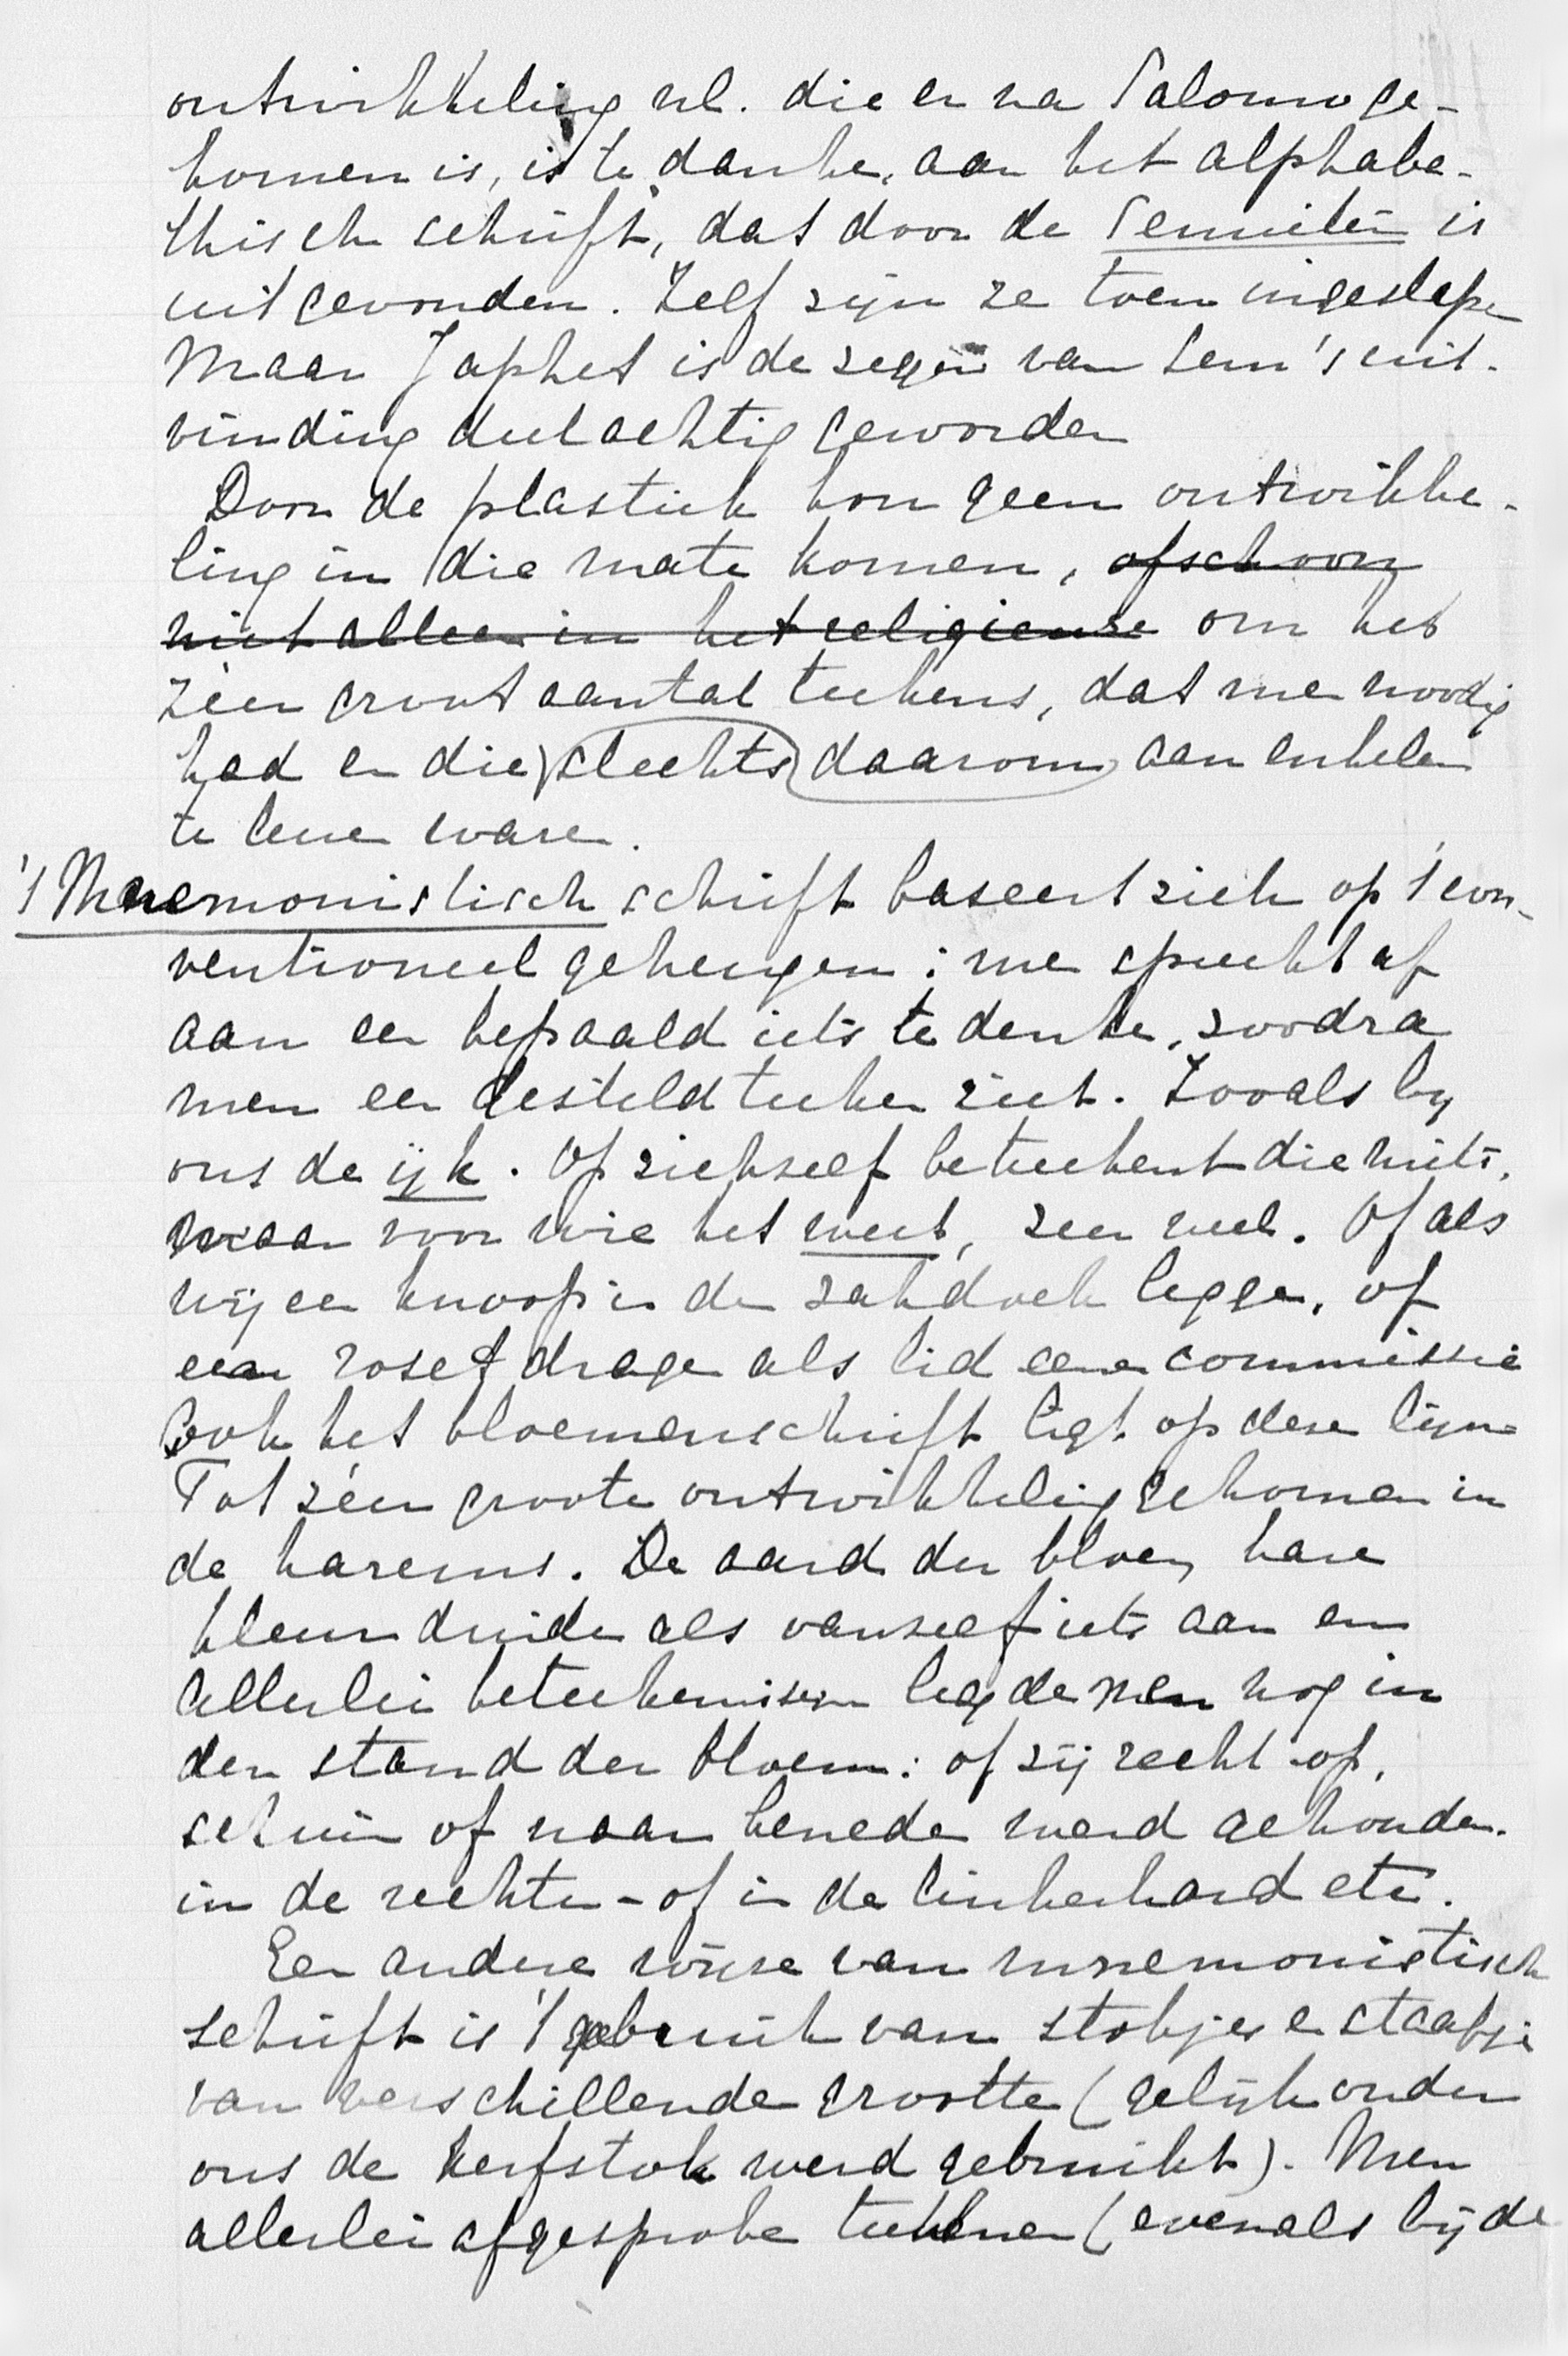 ontwikkeling nl. die er na Salomo ge-
komen is, is te danke, aan het alphabe-
thisch schrift, dat door de Semieten is
uitgevonden. Zelf zijn ze toen ingeslape
Maar Japhet is de zegen van Sem's uit-
vinding deelachtig geworden
Door de plastiek kon geen ontwikke-
ling in die mate komen, ofschoon
niet alleen in het religieuze om het
zéér groot aantal teekens, dat me noodig
had en die slechts daarom aan enkelen
te leeren ware.
't Mnemonistisch schrift baseert zich op 't con-
ventioneel geheugen: me spreekt af
aan een bepaald iets te denke, zoodra
men een gesteld teeken ziet. Zooals bij
ons de ijk. Op zichzelf beteekent die niets,
maar voor wie het weet, zeer veel. Of als
wij een knoop in de zakdoek legge, of
een roset drage als lid eener commissie
Ook het bloemenschrift ligt op deze lijn
Tot zéér groote ontwikkeling gekomen in
de harems. De aard der bloem, hare
kleur duide als vanzelf iets aan en
allerlei beteekenissen legde men nog in
den stand der bloem: of zij recht op,
schuin of naar beneden werd gehouden.
in de rechter- of in de linkerhand etc.
Een andere wijze van mnemonistisch
schrift is 't gebruik van stokjes e staafje
van verschillende grootte (gelijk onder
ons de kerfstok werd gebruikt). Men
allerlei afgesproke teekenen (evenals bij de